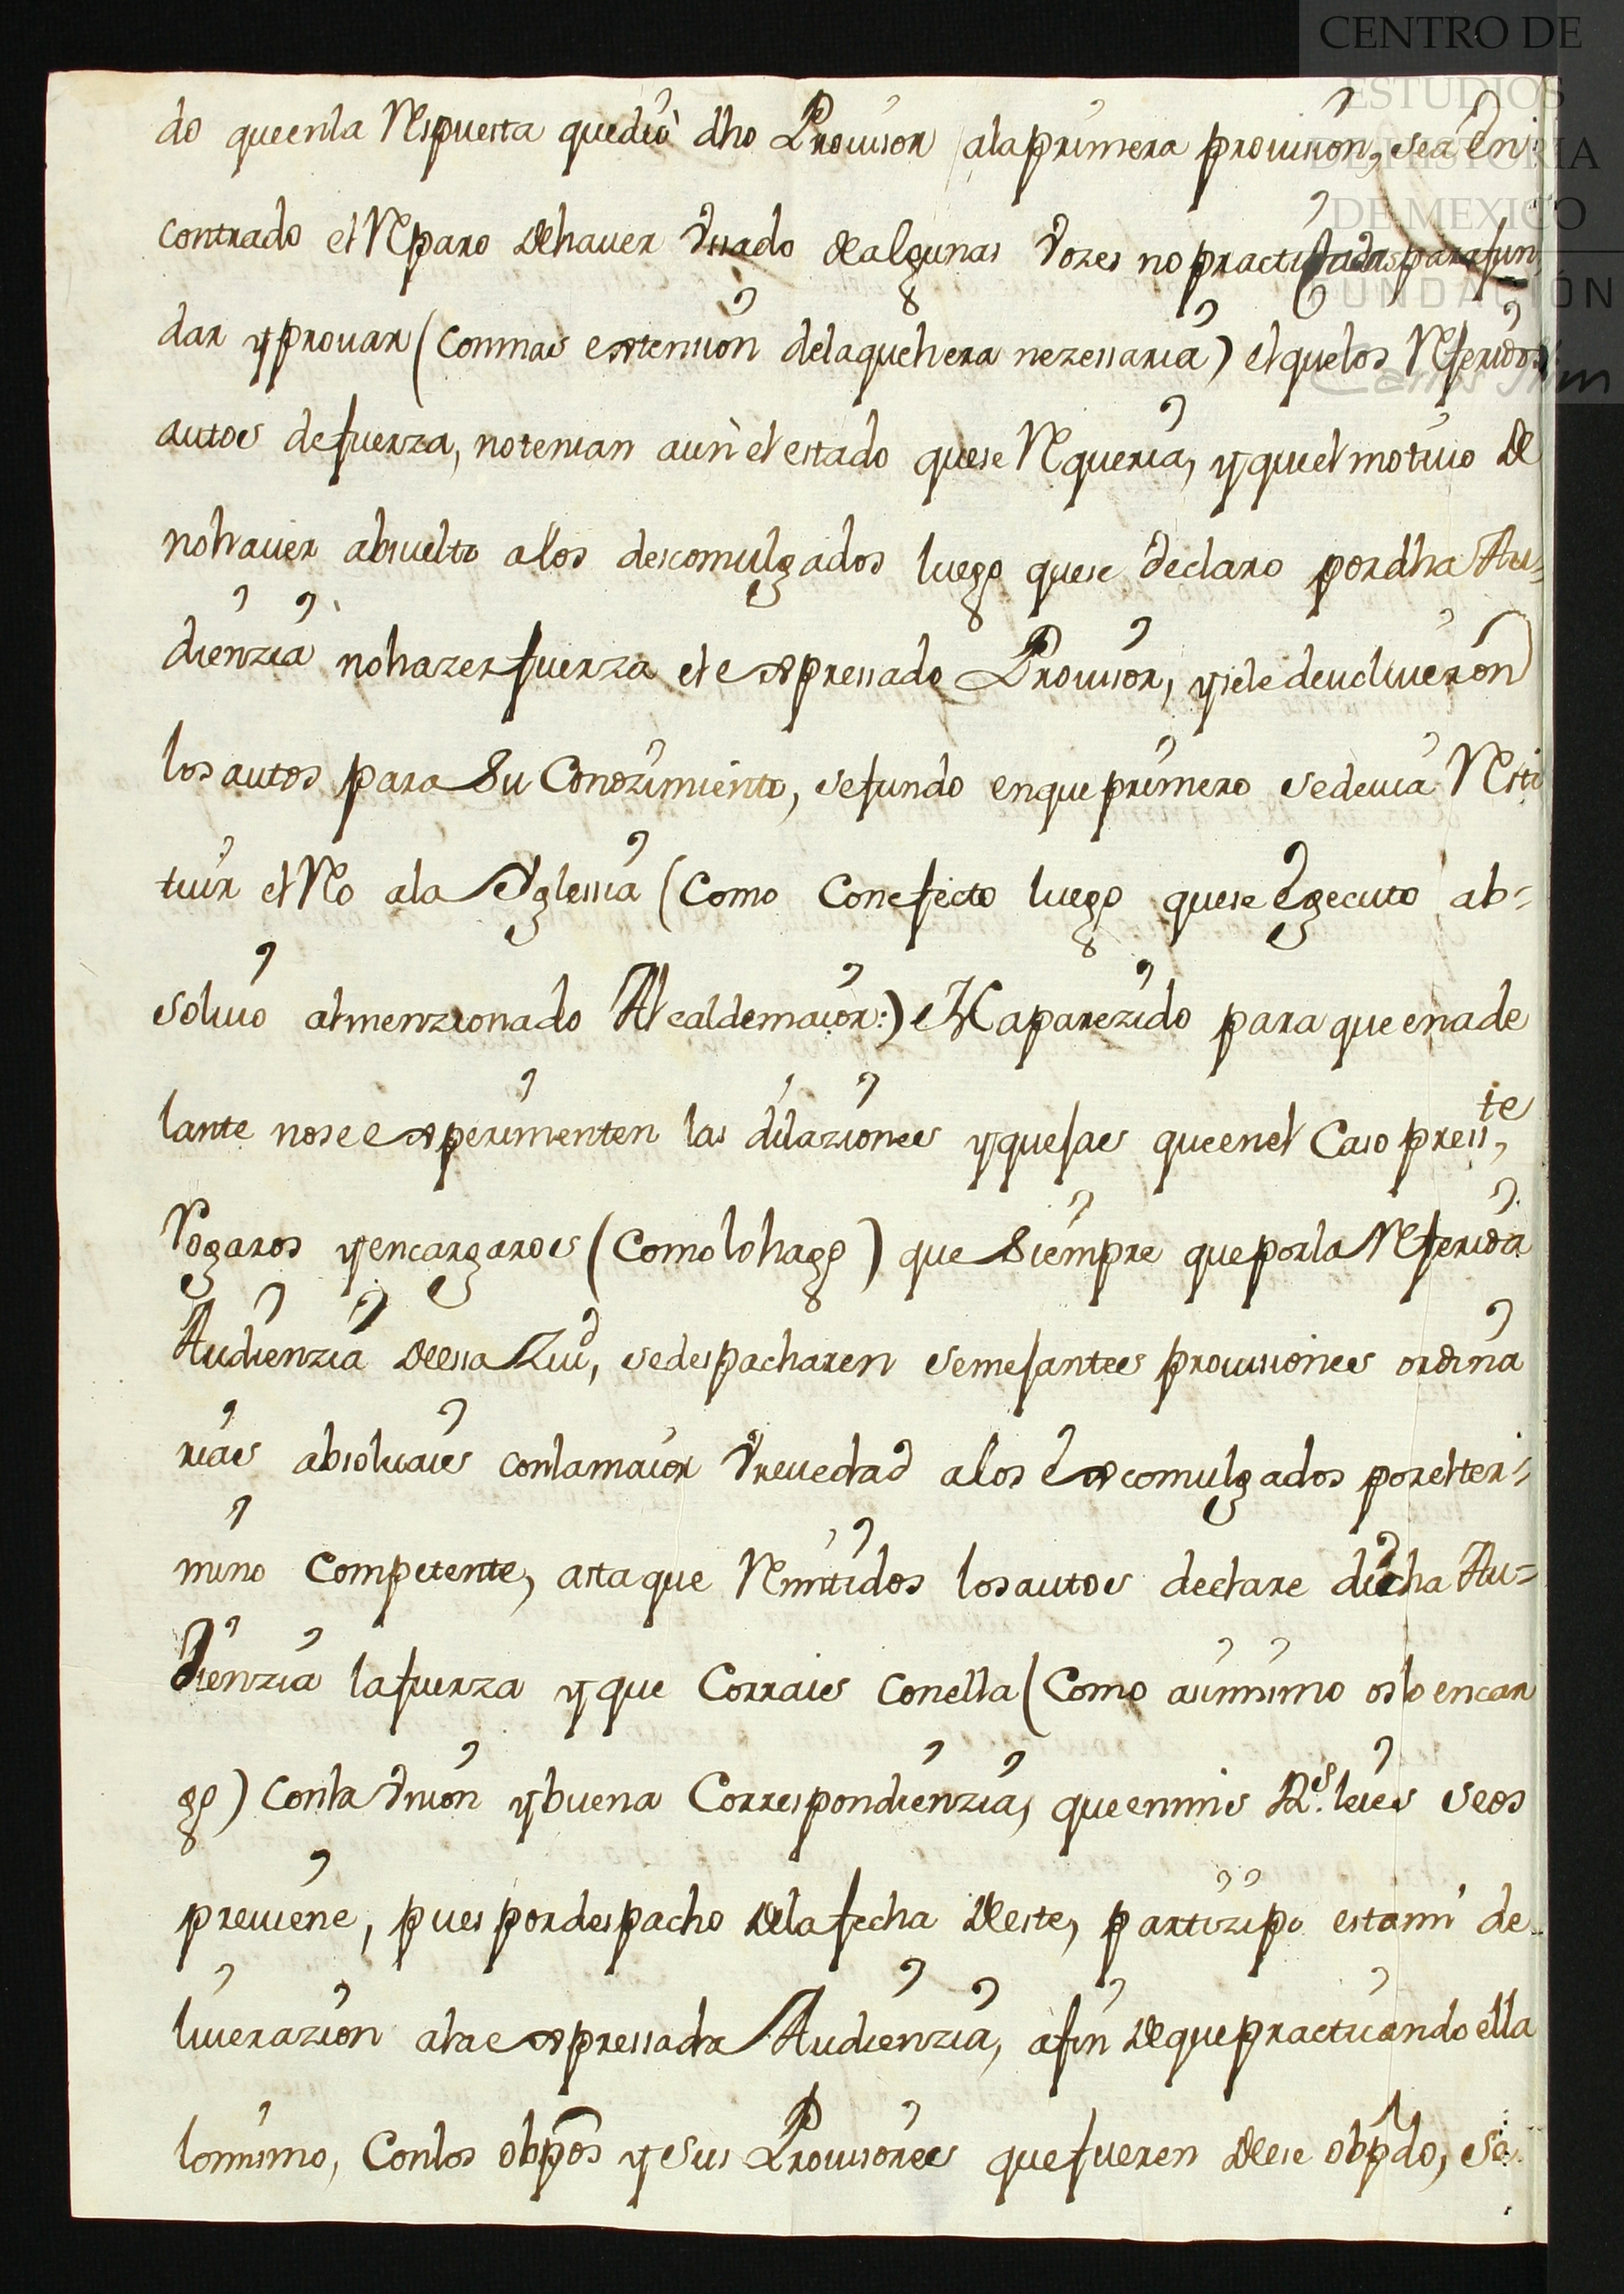 CENTRO DE
ESTUDIOS
DE HISTORIA
DE MEXICO
FUNDACIÓN
Carlos Slim
do queenla Respuesta quedió dho Provisor alaprimera provision, sea en
contrado el Reparo dehauer vssado dealgunas vozes nopracticadas parafun
dar yprouar (conmas extension delaquehera nezessaria) elquelos Referidos
autos defuerza, notenian aun el estado quese Requeria, yqueel motiuo de
nohauer absuelto alos descomulgados luego quese declaro pordha Au-
dienzia nohazerfuerza el expressado Provisor, ysele deuoluieron
losautos para Su Conozimiento, sefundo enqueprimero sedeuia Resti
tuir el Reo ala Yglessia (Como Conefecto luego quese Egecuto ab=
soluio almenzionado Alcaldemaior:) Haparezido para que enade
lante nose experimenten las dilaziones yquejas queenel Caso press.te
Rogaros yencargaros (Comolohago) que Siempre queporla Referida
Audienzia deessa Ziud, sedespacharen semejantes provisiones ordina
rias absoluais conlamaior vreuedad alos excomulgados porelter-
mino competente, asta que Remitidos losautos declare dicha Au=
dienzia lafuerza yque Corrais Conella (Como asimismo oslo encar
go) Conla vnion ybuena Correspondienzia, queenmis R.s leies seos
preuiene, pues pordespacho delafecha deeste, partizipo estami de-
liuerazion alaexpressada Audienzia, afin dequepracticando ella
lomismo, Conlos obpos ysus Provisores quefueren deese obpdo, se